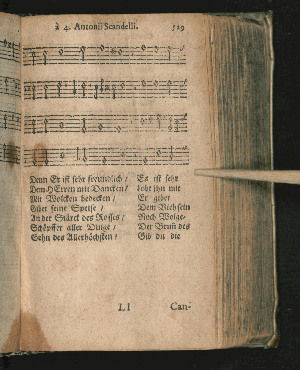 à 4. Antonii Scandelli. 529
Denn Er ist sehr freundlich / Es ist sehr
Dem HErren mit Dancken / lobt ihn mit
Mit Wolcken bedecken / Er gibet
Güet seine Speise / Dem Vieh sein
In der Stärck des Rosses / Noch Wolge-
Schöpffer aller Dinge / Der Brunn des
Sohn des Allerhöchsten / Gib du die
L l Can-